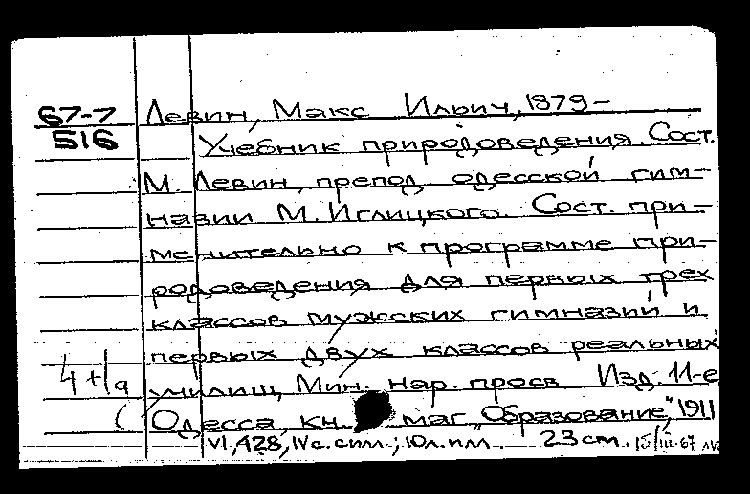 67-7 Левин, Макс Ильич, 1879-
516 Учебник природоведения. Сост.
М. Левин, препод. одесской гим-
назии М. Иглицкого. Сост. при-
менительно к программе при-
родоведения для первых трех
классов мужских гимназий и
первых двух классов реальных
училищ Мин. нар. просв. Изд. 11-е
Одесса, кн. маг. "Образование", 1911
VI, 428, IV с. с илл.; 10 л. илл. 23 cm. 15/III-67